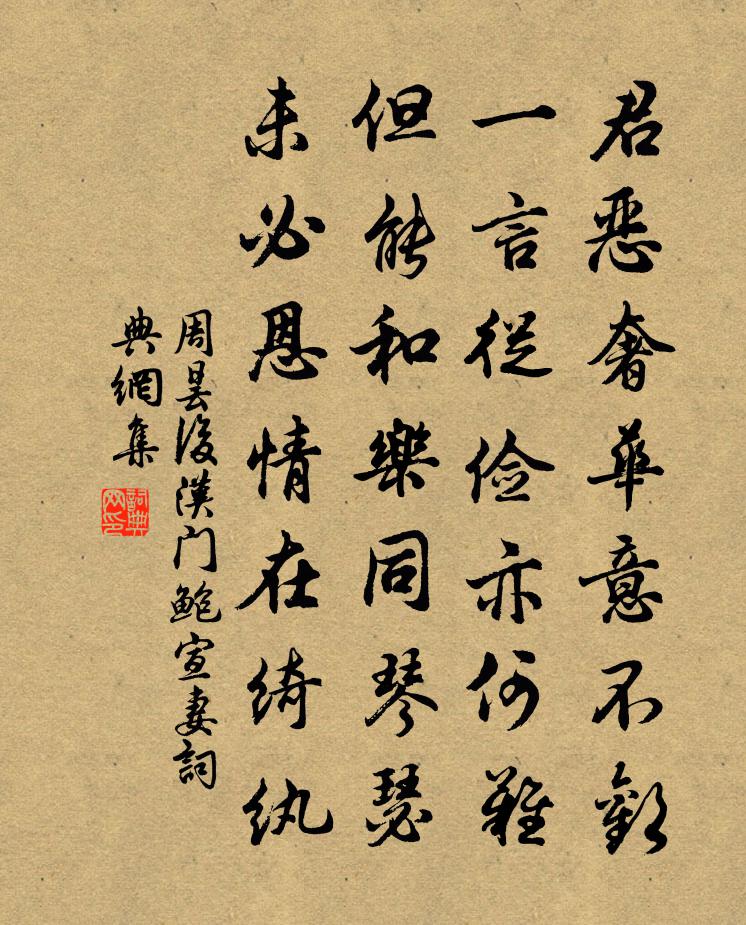 君惡奢華意不歡
一言從儉亦何難
但能和樂同琴瑟
未必恩情在綺紈
周曇後漢門鮑宣妻詞
典網集
詞典
网印